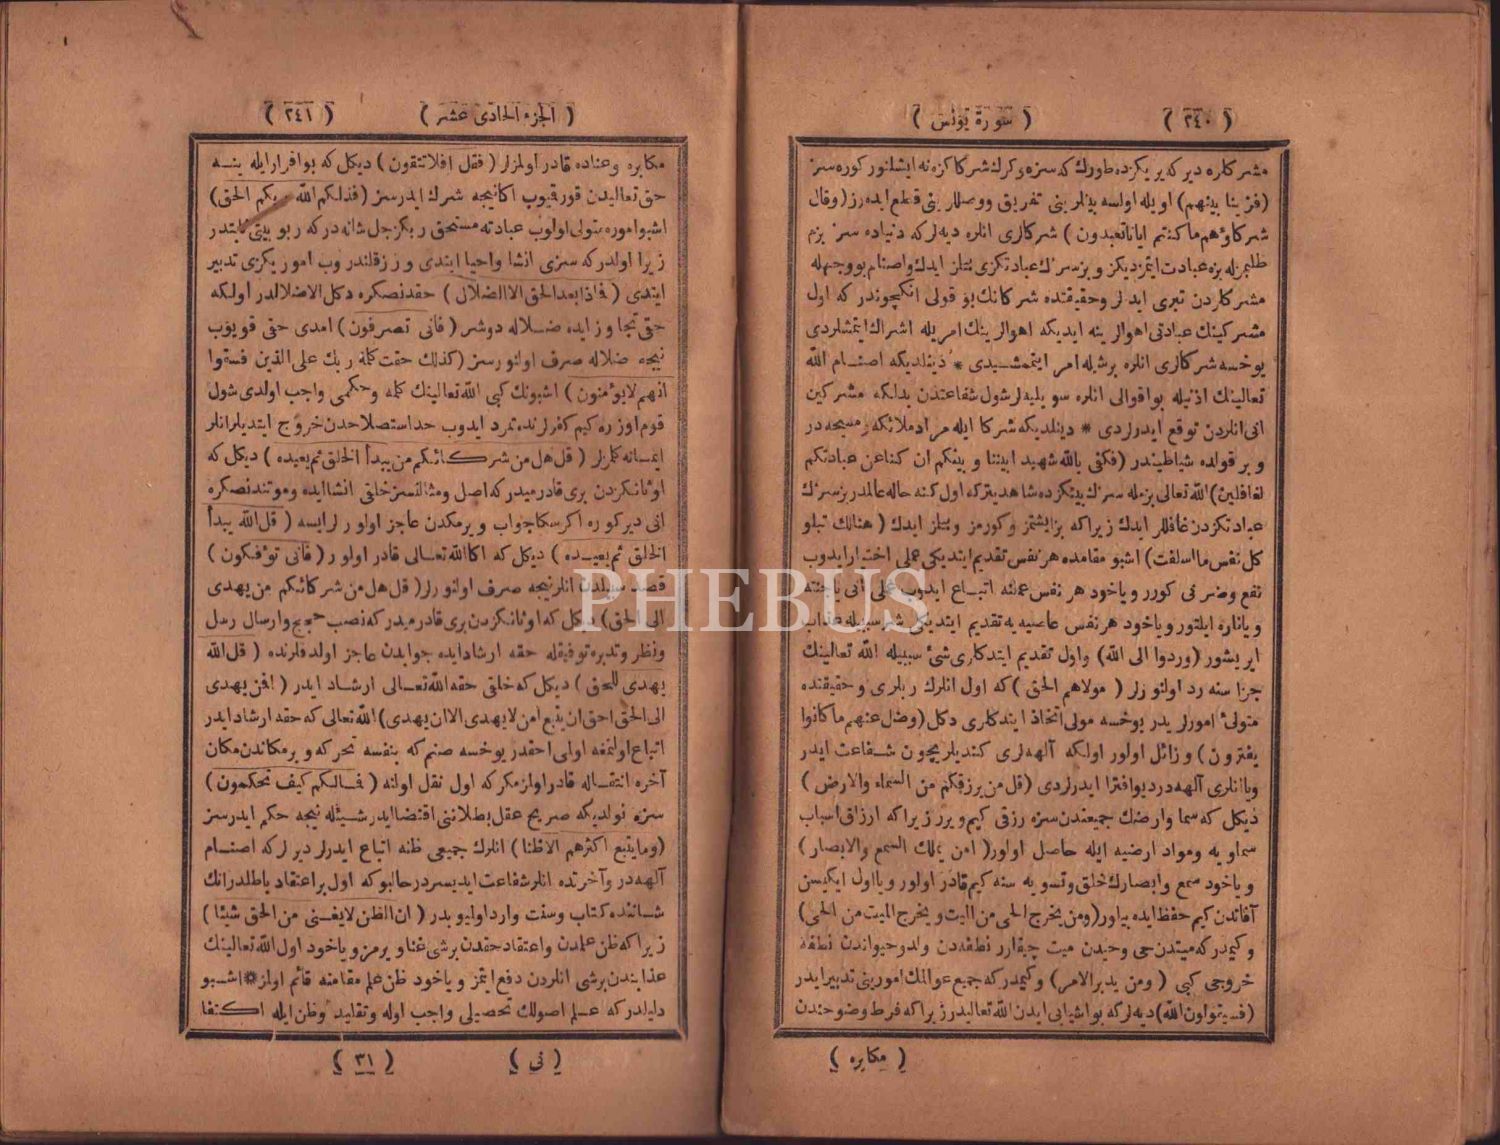 ( ٢٤٠ ) ( سورة يونس )
مشركلره ديركه يريكزده طورك كه سزه وكرك شركاكزه نه ايشلنور كوره سز
(فزيلنا بينهم) اويله اولسه بينلريني تفريق ووصللريني قطع ايده رز (وقال
شركاؤهم ماكنتم ايانا تعبدون) شركالرى انلره ديه لركه دنياده سز بزم
طلبمزله بزه عبادت ايتمزديكز وبز سزك عبادتكزى بيلمز ايدك واصنام بو وجهله
مشركلردن تبرى ايدلر وحقيقتده شركانك بو قولى انكيچوندر كه اول
مشركينك عبادتى اهوالرينه ايديكه اهوالرينك امريله اشراك ايتمشلردى
يوخسه شركالرى انلره برشيله امر ايتمه مشيدى * دينلديكه اصنام الله
تعالينك اذنيله بو اقوالى انلره سويليه لر شول شفاعتدن بدلكه مشركين
انى انلردن توقع ايدرلردى * دينلديكه شركا ايله مراد ملائكه ومسيحدر
وبر قولده شياطيندر (فكفى بالله شهيدا بيننا وبينكم ان كنا عن عبادتكم
لغافلين) الله تعالى بزمله سزك بينكزده شاهد يتركه اول كنه حاله عالمدر بز سزك
عبادتكزدن غافللر ايدك زيراكه بز ايشتمز وكورمز وبيلمز ايدك (هنالك تبلو
كل نفس ما اسلفت) اشبو مقامده هر نفس تقديم ايتديكى عملى اختبار ايدوب
نفع وضرنى كورر وياخود هر نفس عملنه اتباع ايدوب عملى آنى ياجنته
ويا ناره ايلتور وياخود هر نفس عاصيه يه تقديم ايتديكى شر سببيله عذاب
ايريشور (وردوا الى الله) واول تقديم ايتدكلرى شئ سببيله الله تعالينك
جزاسنه رد اولنورلر (مولاهم الحق) كه اول انلرك ربلرى وحقيقتده
متولئ امورلريدر يوخسه مولى اتخاذ ايتدكلرى دكل (وضل عنهم ما كانوا
يفترون) وزائل اولور اولكه آلهه لرى كنديلريچون شفاعت ايدر
ويا انلرى آلهه در ديو افترا ايدرلردى (قل من يرزقكم من السماء والارض)
ديكل كه سما وارضك جميعندن سزه رزقى كيم ويرر زيراكه ارزاق اسباب
سماويه ومواد ارضيه ايله حاصل اولور (امن يملك السمع والابصار)
وياخود سمع وابصارك خلق وتسويه سنه كيم قادر اولور ويا اول ايكيسن
آفاتدن كيم حفظ ايده بيلور (ومن يخرج الحى من الميت ويخرج الميت من الحى)
وكيمدر كه ميتدن حى وحيدن ميت چيقارر نطفه دن ولد وحيواندن نطفه
خروجى كبى (ومن يدبر الامر) وكيمدر كه جميع عوالمك امورينى تدبير ايدر
(فسيقولون الله) ديه لركه بو اشيايى ايدن الله تعاليدر زيراكه فرط وضوحندن
( مكابره )
( الجزء الحادى عشر ) ( ٢٤١ )
مكابره وعناده قادر اولمزلر (فقل افلا تتقون) ديكل كه بو اقرار ايله ينه
حق تعاليدن قورقيوب اكا نيجه شرك ايدرسز (فذلكم الله ربكم الحق)
اشبو اموره متولى اولوب عبادته مستحق ربكز جل شانه در كه ربوبيتى ثابتدر
زيرا اولدر كه سزى انشا واحيا ايتدى ورزقلندروب اموريكزى تدبير
ايتدى (فماذا بعد الحق الا الضلال) حقدنصكره دكل الا ضلالدر اولكه
حقى تجاوز ايده ضلاله دوشر (فانى تصرفون) امدى حقى قويوب
نيجه ضلاله صرف اولنورسز (كذلك حقت كلمة ربك على الذين فسقوا
انهم لايؤمنون) اشبونك كبى الله تعالينك كلمه وحكمى واجب اولدى شول
قوم اوزره كيم كفرلرنده تمرد ايدوب حد استصلاحدن خروج ايتديلر انلر
ايمانه كلمزلر (قل هل من شركائكم من يبدأ الخلق ثم يعيده) ديكل كه
اوثانكزدن برى قادر ميدر كه اصل ومثالسز خلقى انشا ايده وموتندنصكره
انى ديركوره اكر سكا جواب ويرمكدن عاجز اولورلر ايسه (قل الله يبدأ
الخلق ثم يعيده) ديكل كه اكا الله تعالى قادر اولور (فانى تؤفكون)
قصد سبيلدن انلر نيجه صرف اولنورلر (قل هل من شركائكم من يهدى
الى الحق) ديكل كه اوثانكزدن برى قادر ميدر كه نصب حجج وارسال رسل
ونظر وتدبره توفيقله حقه ارشاد ايده جوابدن عاجز اولدقلرنده (قل الله
يهدى للحق) ديكل كه خلقى حقه الله تعالى ارشاد ايدر (افمن يهدى
الى الحق احق ان يتبع امن لايهدى الا ان يهدى) الله تعالى كه حقه ارشاد ايدر
اتباع اولنمغه اولى احقدر يوخسه صنم كه بنفسه تحركه وبر مكاندن مكان
آخره انتقاله قادر اولمز مكر كه اول نقل اولنه (فمالكم كيف تحكمون)
سزه نولديكه صريح عقل بطلاننى اقتضا ايدر شيئله نيجه حكم ايدرسز
(وما يتبع اكثرهم الا ظنا) انلرك جميعى ظنه اتباع ايدرلر ديرلر كه اصنام
آلهه در وآخرتده انلر شفاعت ايديسردر حالبوكه اول بر اعتقاد باطلدر انك
شاننده كتاب وسنت وارد اوليوبدر (ان الظن لايغنى من الحق شيئا)
زيراكه ظن علمدن واعتقاد حقدن برشى غنا ويرمز وياخود اول الله تعالينك
عذابندن برشى انلردن دفع ايتمز وياخود ظن علم مقامنه قائم اولمز * اشبو
دليلدر كه علم اصولك تحصيلى واجب اوله وتقليد وظن ايله اكتفا
( نى ) ( ٣١ )
PHEBUS